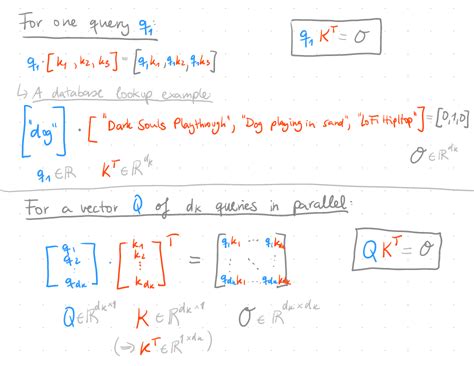 For one query q₁:
q₁ · [k₁, k₂, k₃] = [q₁k₁, q₁k₂, q₁k₃]
q₁ Kᵀ = σ
↳ A database lookup example
["dog"] · ["Dark Souls Playthrough", "Dog playing in sand", "LoFi HipHop"] = [0,1,0]
q₁ ∈ ℝ Kᵀ ∈ ℝ^dₖ σ ∈ ℝ^dₖ
For a vector Q of dₖ queries in parallel:
[q₁ q₂ ⋮ q_dₖ] · [k₁ k₂ ⋮ k_dₖ]ᵀ = [q₁k₁ ⋯ q₁k_dₖ ⋮ ⋱ ⋮ q_dₖk₁ ⋯ q_dₖk_dₖ]
Q Kᵀ = σ
Q ∈ ℝ^dₖ×1 K ∈ ℝ^dₖ×1 σ ∈ ℝ^dₖ×dₖ
(⇒ Kᵀ ∈ ℝ^1×dₖ)